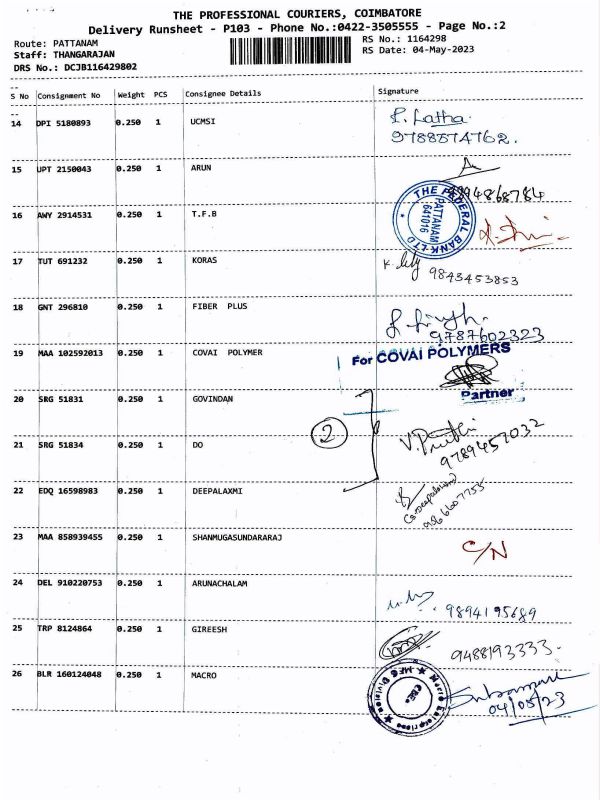 THE PROFESSIONAL COURIERS, COIMBATORE
Delivery Runsheet - P103 - Phone No.:0422-3505555 - Page No.:2
Route: PATTANAM
RS No.: 1164298
Staff: THANGARAJAN
RS Date: 04-May-2023
DRS No.: DCJB116429802
S No Consignment No Weight PCS Consignee Details Signature
14 DPI 5180893 0.250 1 UCMSI P. Latha
9788574762.
15 UPT 2150043 0.250 1 ARUN
9994868784
16 AWY 2914531 0.250 1 T.F.B
THE FEDERAL BANK LTD
PATTANAM
641016
17 TUT 691232 0.250 1 KORAS K. lily 9843453853
18 GNT 296810 0.250 1 FIBER PLUS
9787602323
19 MAA 102592013 0.250 1 COVAI POLYMER For COVAI POLYMERS
Partner
20 SRG 51831 0.250 1 GOVINDAN
2
21 SRG 51834 0.250 1 DO
9789457032
22 EDQ 16598983 0.250 1 DEEPALAXMI
23 MAA 858939455 0.250 1 SHANMUGASUNDARARAJ C/N
24 DEL 910220753 0.250 1 ARUNACHALAM 9894195689
25 TRP 8124864 0.250 1 GIREESH 9488193333.
26 BLR 160124048 0.250 1 MACRO
Macro Enterprise MFG Division
04/05/23